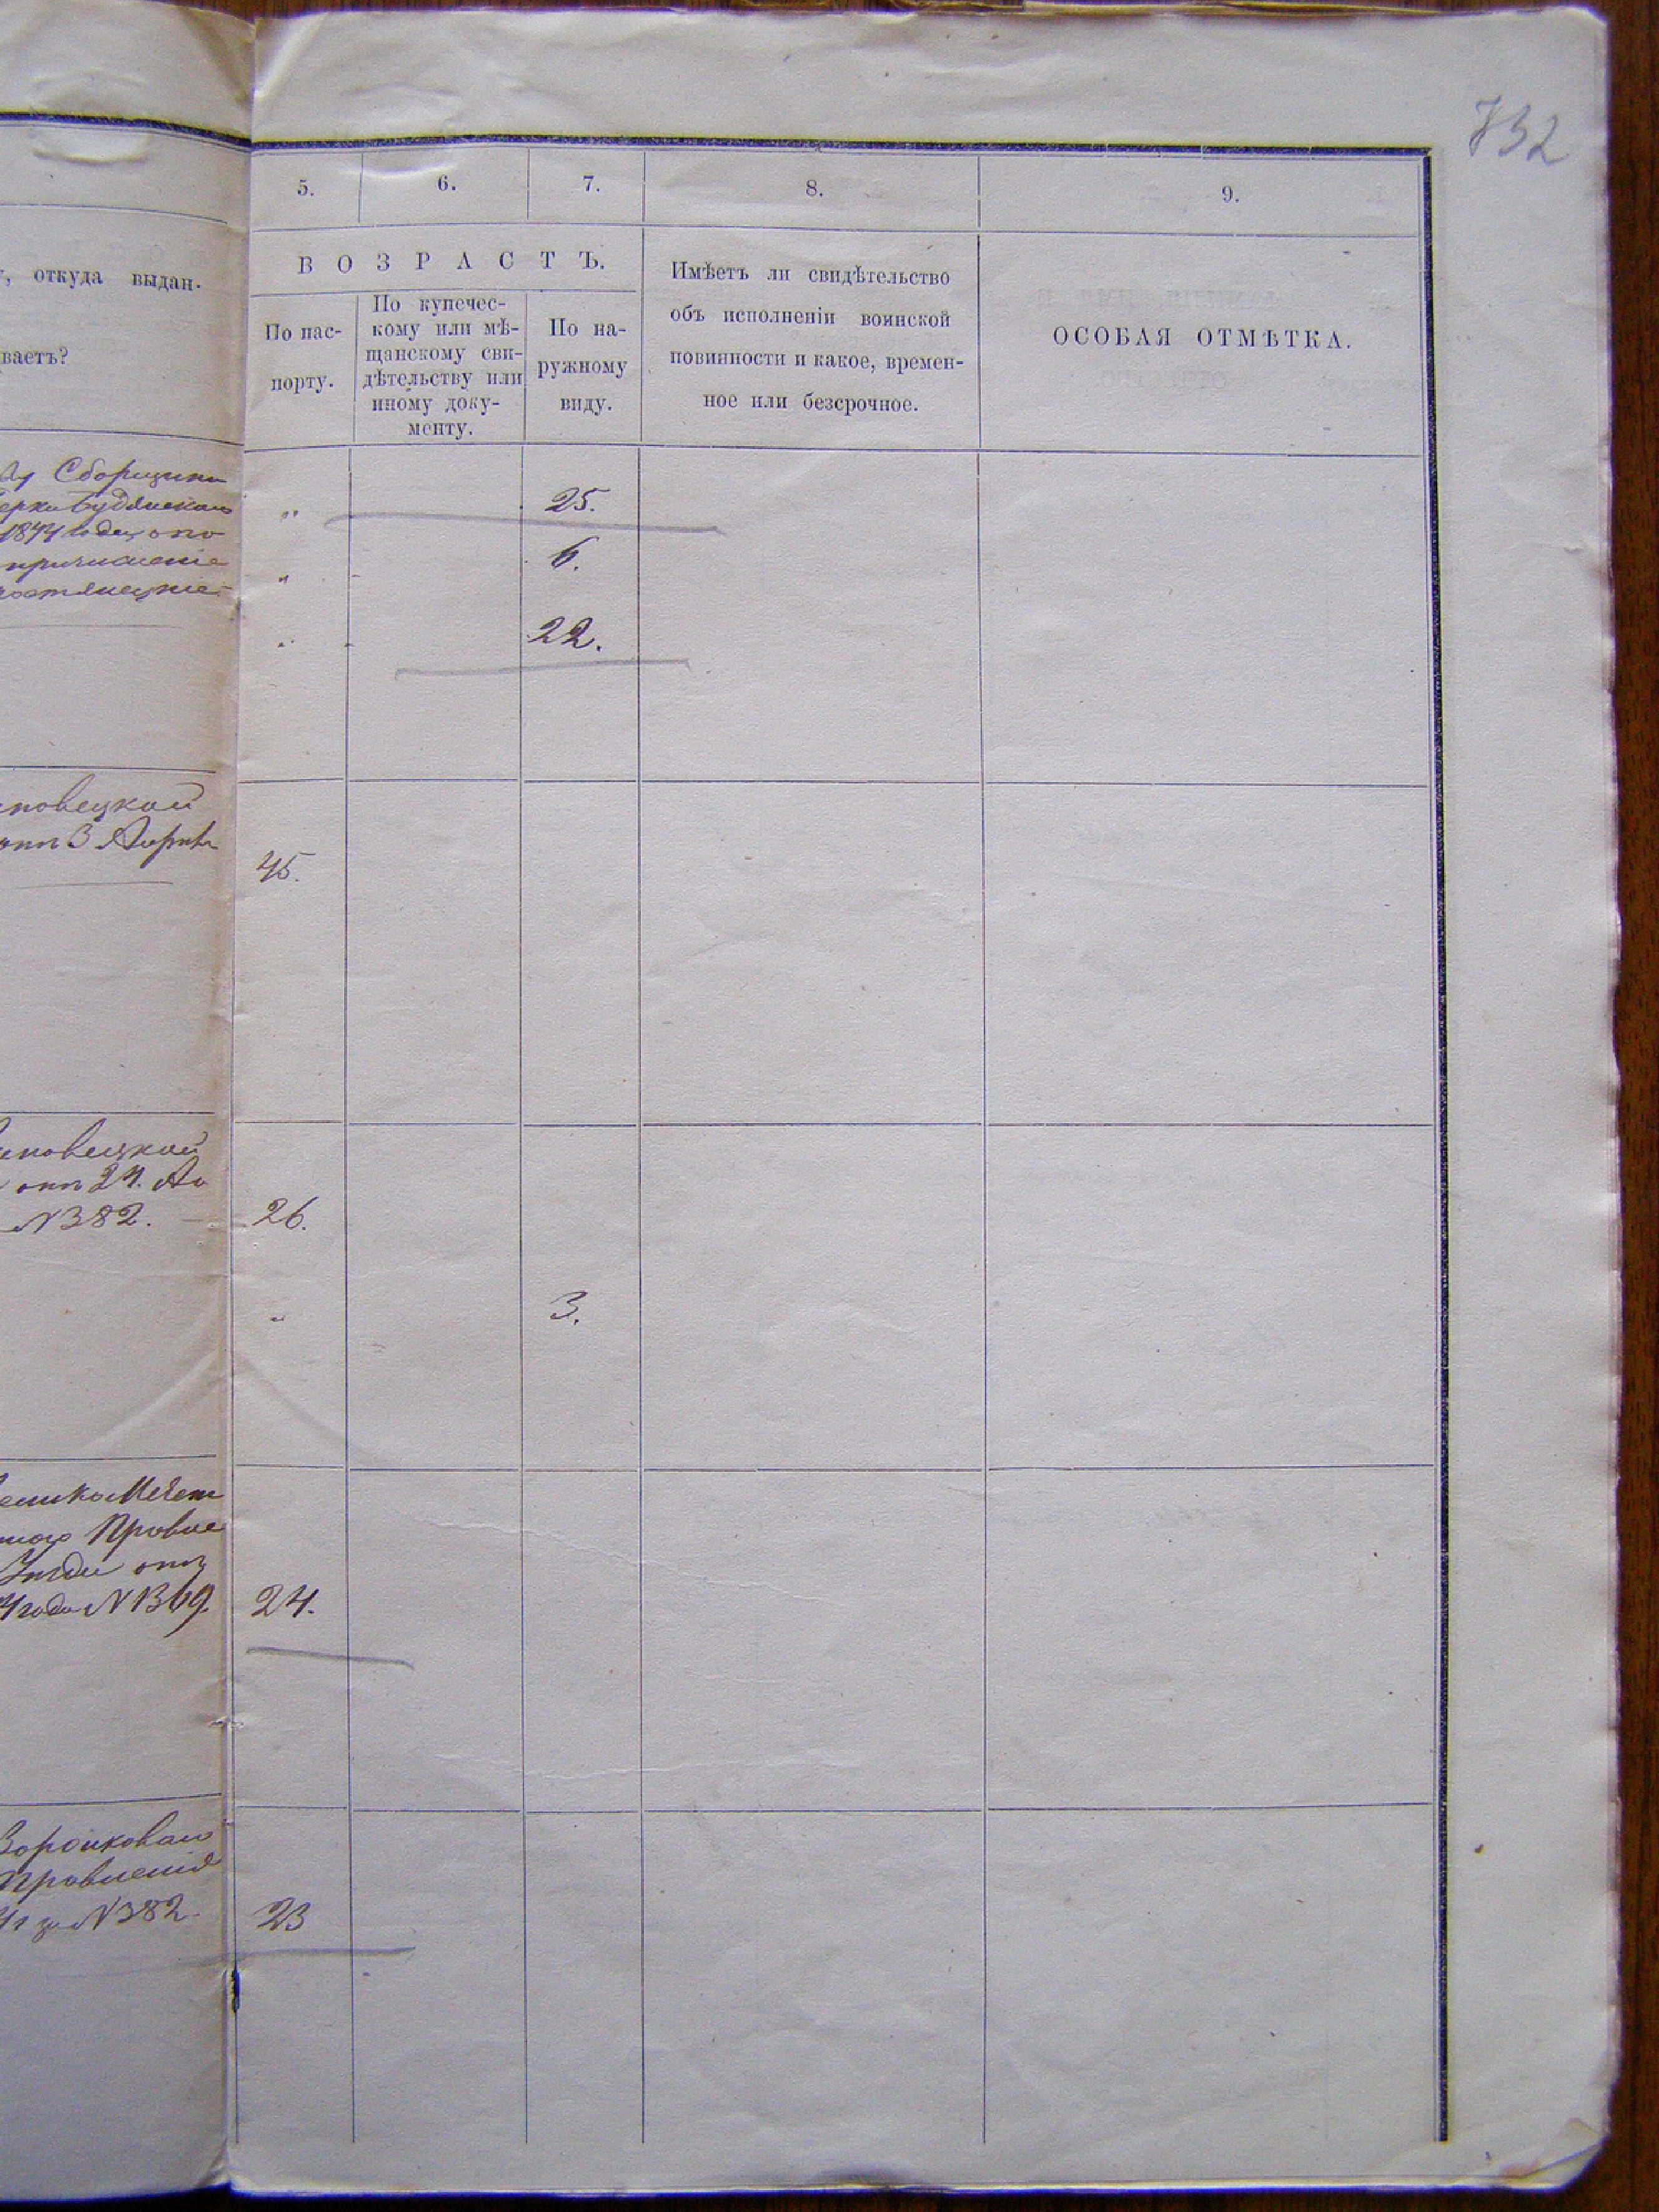 732
5.
6.
7.
8.
9.
, откуда выдан-
ваетъ?
ВОЗРАСТЪ.
По пас-
порту.
По купечес-
кому или мѣ-
щанскому сви-
дѣтельству или
иному доку-
менту.
По на-
ружному
виду.
Имѣетъ ли свидѣтельство
объ исполненіи воинской
повинности и какое, времен-
ное или безсрочное.
ОСОБАЯ ОТМѢТКА.
1874 года
" 25.
причисленіе
" 6.
" 22.
новецкой
3 Апрѣля
45.
новецкой
отъ 24. Ап
N 382. 26.
" 3.
Правле
отъ
4 года N 1369. 24.
Правленія
N 382. 23